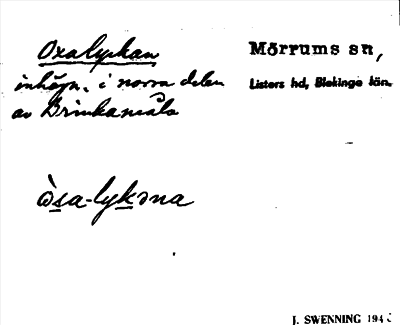 Oxalyckan
Mörrums sn,
inhägn. i norra delen
Listers hd, Blekinge län.
av Brinkamåla
ò̱sa-lyḵəna
J. SWENNING 194